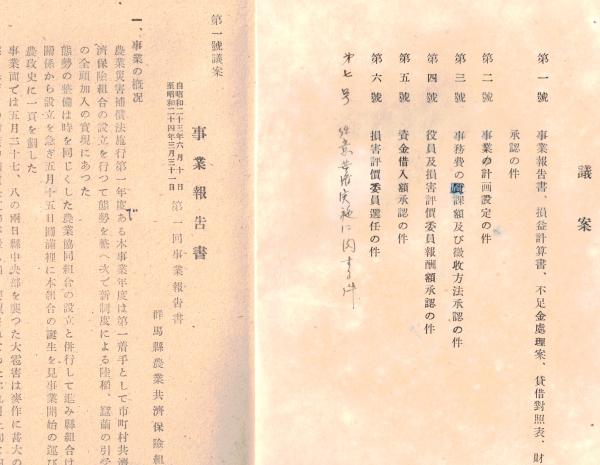 議案
第一號 事業報告書、損益計算書、不足金處理案、貸借對照表、財
承認の件
第二號 事業の計画設定の件
第三號 事務費の賦課額及び徴收方法承認の件
第四號 役員及損害評價委員報酬額承認の件
第五號 資金借入額承認の件
第六號 損害評價委員選任の件
第七号 任意共済実施に関する件
第一號議案
事業報告書
自昭和二十三年六月十日
至昭和二十四年三月三十一日
第一回事業報告書
群馬縣農業共濟保險組
一、事業の概況
農業災害補償法施行第一年度である本事業年度は第一着手として市町村共濟
濟保險組合の設立を行つて態勢を整へ次で新制度による陸稲、蚕繭の引受
の全頭加入の實現にあつた
態勢の整備は時を同じくした農業協同組合の設立と併行して進み縣組合は
關係から設立を急ぎ五月十五日圓滿裡に本組合の誕生を見事業開始の運び
農政史に一頁を劃した
事業面では五月二十七、八の兩日縣中央部を襲つた大雹害は麥作に甚大の